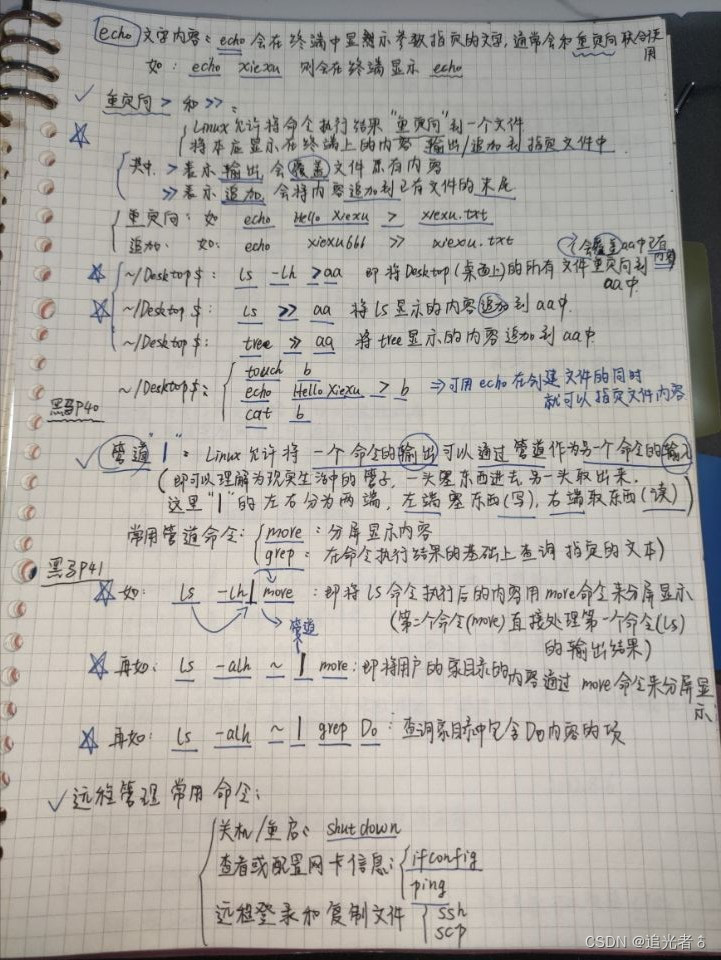 echo 文字内容：echo 会在终端中显示参数指定的文字，通常会和重定向联合使用
如：echo xiexu 则会在终端显示 echo
✓ 重定向 > 和 >>：
Linux 允许将命令执行结果"重定向"到一个文件
☆ 将本应显示在终端上的内容 输出/追加到指定文件中
其中，> 表示输出，会覆盖文件原有内容
>> 表示追加，会将内容追加到已有文件的末尾
重定向：如 echo Hello Xiexu > xiexu.txt
追加：如：echo xiexu666 >> xiexu.txt
会覆盖aa中已有内容
☆ ~/Desktop$：ls -lh >aa 即将Desktop(桌面上)的所有文件重定向到aa中
☆ ~/Desktop$：ls >> aa 将ls显示的内容追加到aa中
~/Desktop$：tree >> aa 将tree显示的内容追加到aa中
~/Desktop$：touch b
echo Hello Xiexu > b ⇒可用echo在创建文件的同时就可以指定文件内容
cat b
黑马P40
✓ 管道"|"：Linux允许将 一个命令的输出 可以通过管道作为另一个命令的输入
(即可以理解为现实生活中的管子，一头塞东西进去，另一头取出来，
这里"|"的左右分为两端，左端塞东西(写)，右端取东西(读))
常用管道命令：more：分屏显示内容
grep：在命令执行结果的基础上查询指定的文本)
黑马P41
☆ 如：ls -lh | more：即将ls命令执行后的内容用more命令来分屏显示
管道
(第二个命令(more)直接处理第一个命令(ls)
的输出结果)
☆ 再如：ls -alh ~ | more：即将用户的家目录的内容通过more命令来分屏显示
☆ 再如：ls -alh ~ | grep Do：查询家目录中包含Do内容的项
✓ 远程管理常用命令：
关机/重启：shutdown
查看或配置网卡信息：ifconfig
ping
远程登录和复制文件 ssh
scp
CSDN @追光者♂